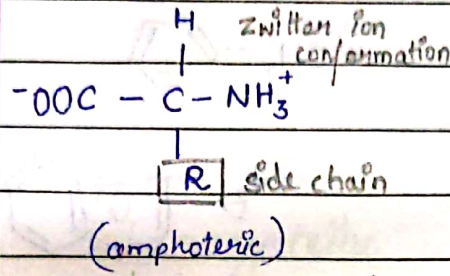 H zwitter ion
conformation
⁻OOC – C – NH₃⁺
R side chain
(amphoteric)